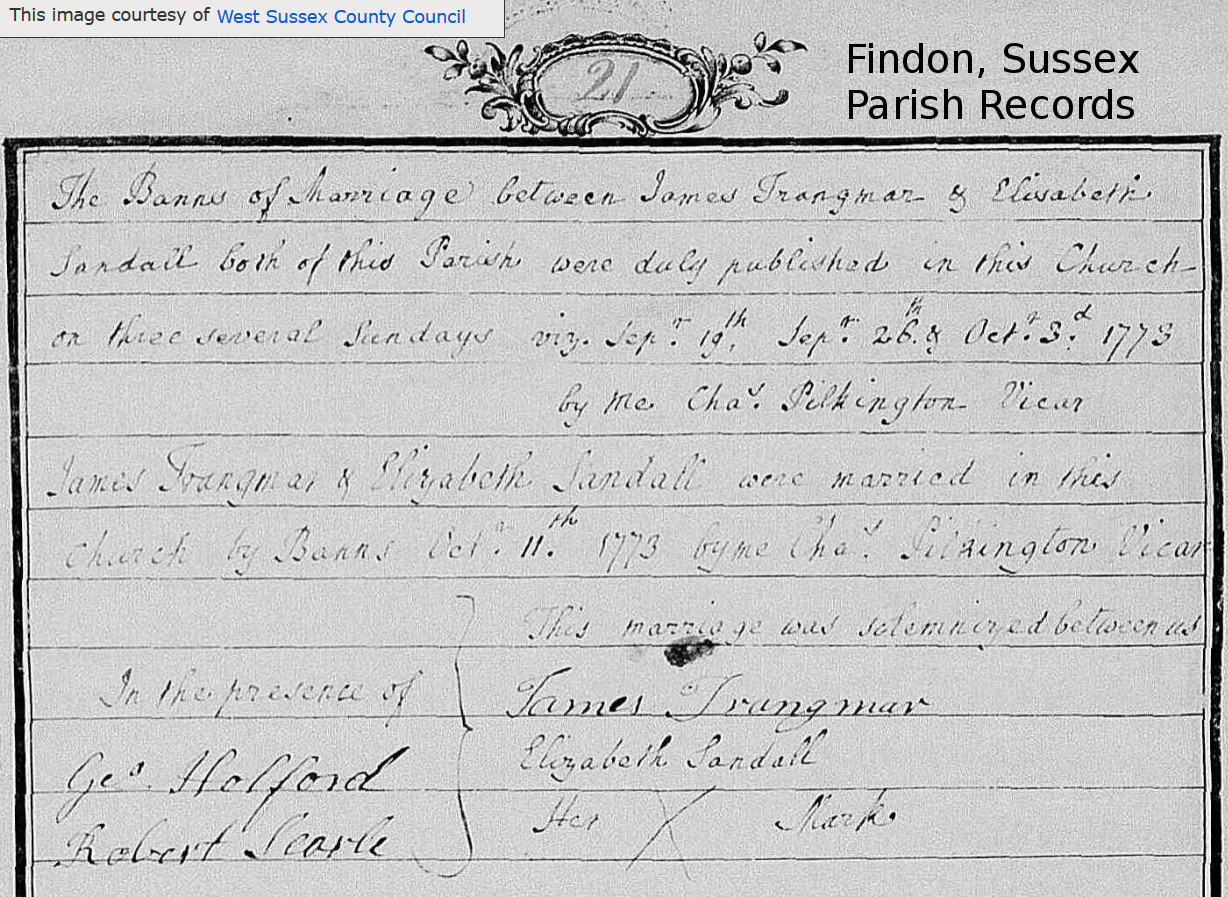 This image courtesy of West Sussex County Council
21
Findon, Sussex
Parish Records
The Banns of Marriage between James Trangmar & Elisabeth
Sandall both of this Parish were duly published in this Church
on three several Sundays viz. Sepr. 19th, Sepr. 26th. & Octr. 3d. 1773
by me Chas. Pilkington Vicar
James Trangmar & Elizabeth Sandall were married in this
church by Banns Octr. 11th. 1773 by me Chas. Pilkington Vicar
This marriage was solemnized between us
In the presence of
James Trangmar
Geo. Holford
Elizabeth Sandall
Robert Searle
Her X Mark